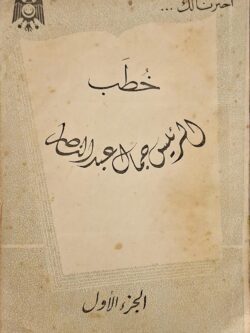 اخترنا لك ...
خُطَب
الرئيس جمال عبد الناصر
الجزء الأول